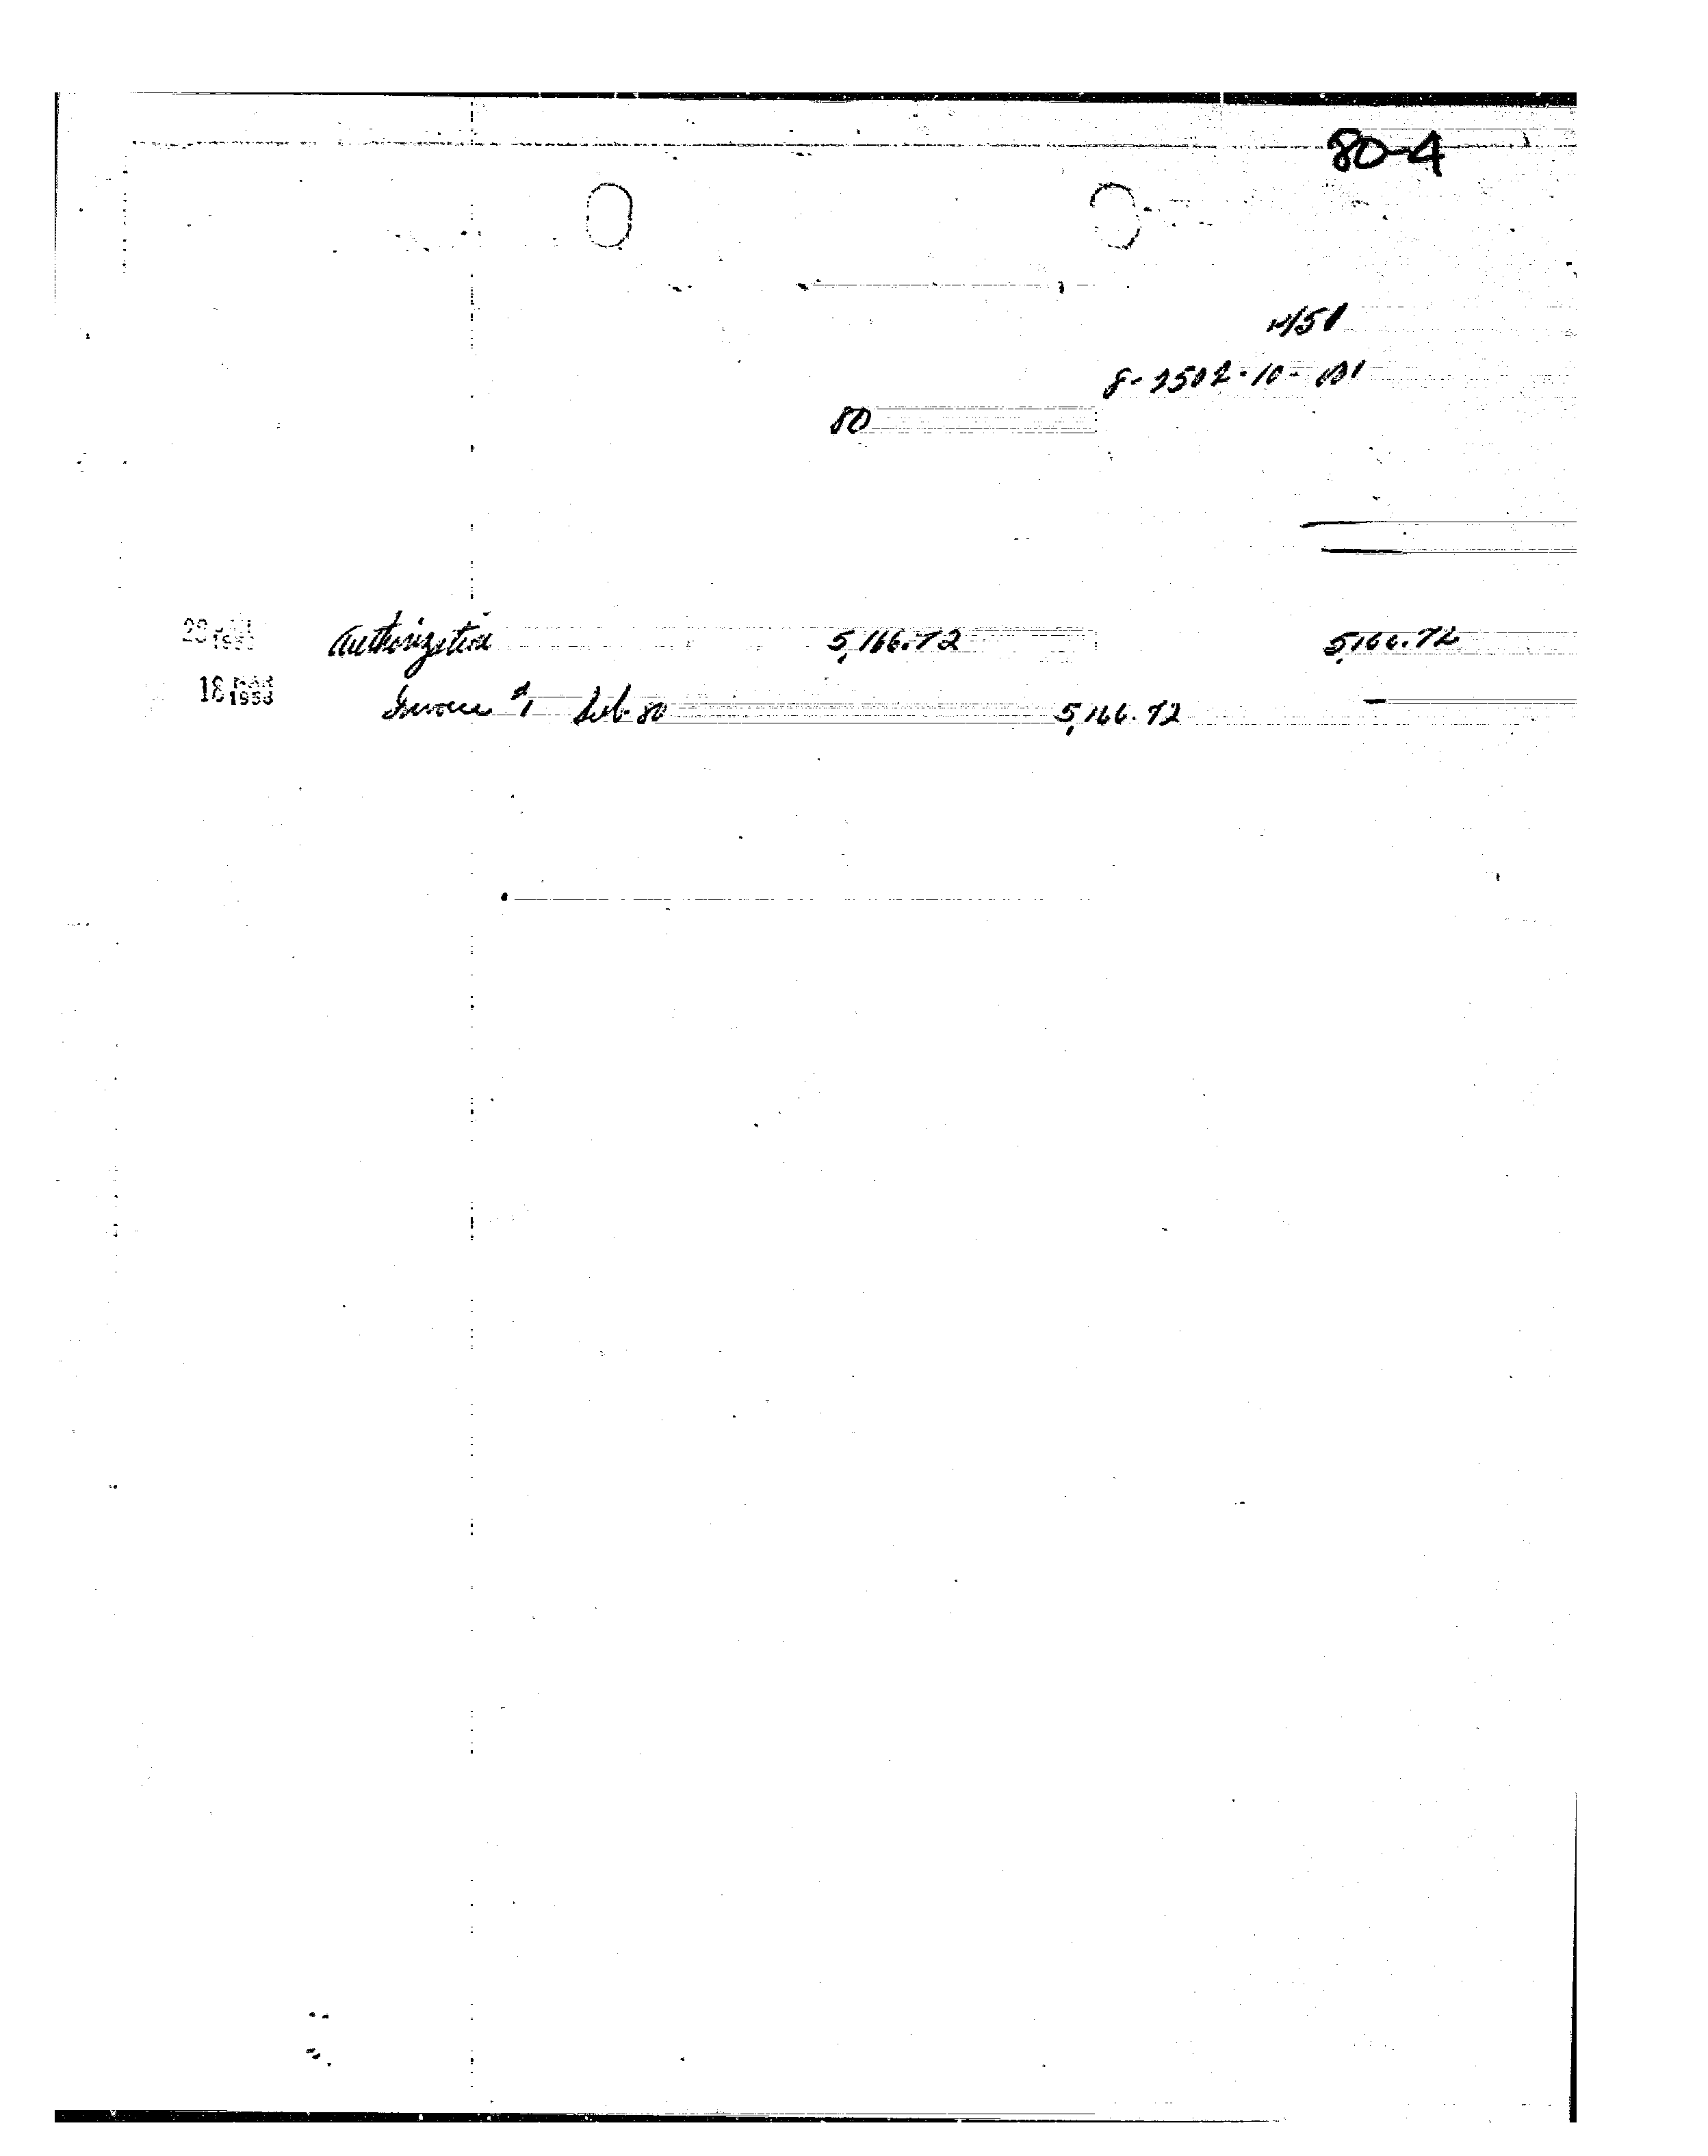 80-4
8-2502-10-001
80
Authorization 5,166.72 5,166.72
18 MAR 1958 Invoice #1 Sub-80 5,166.72